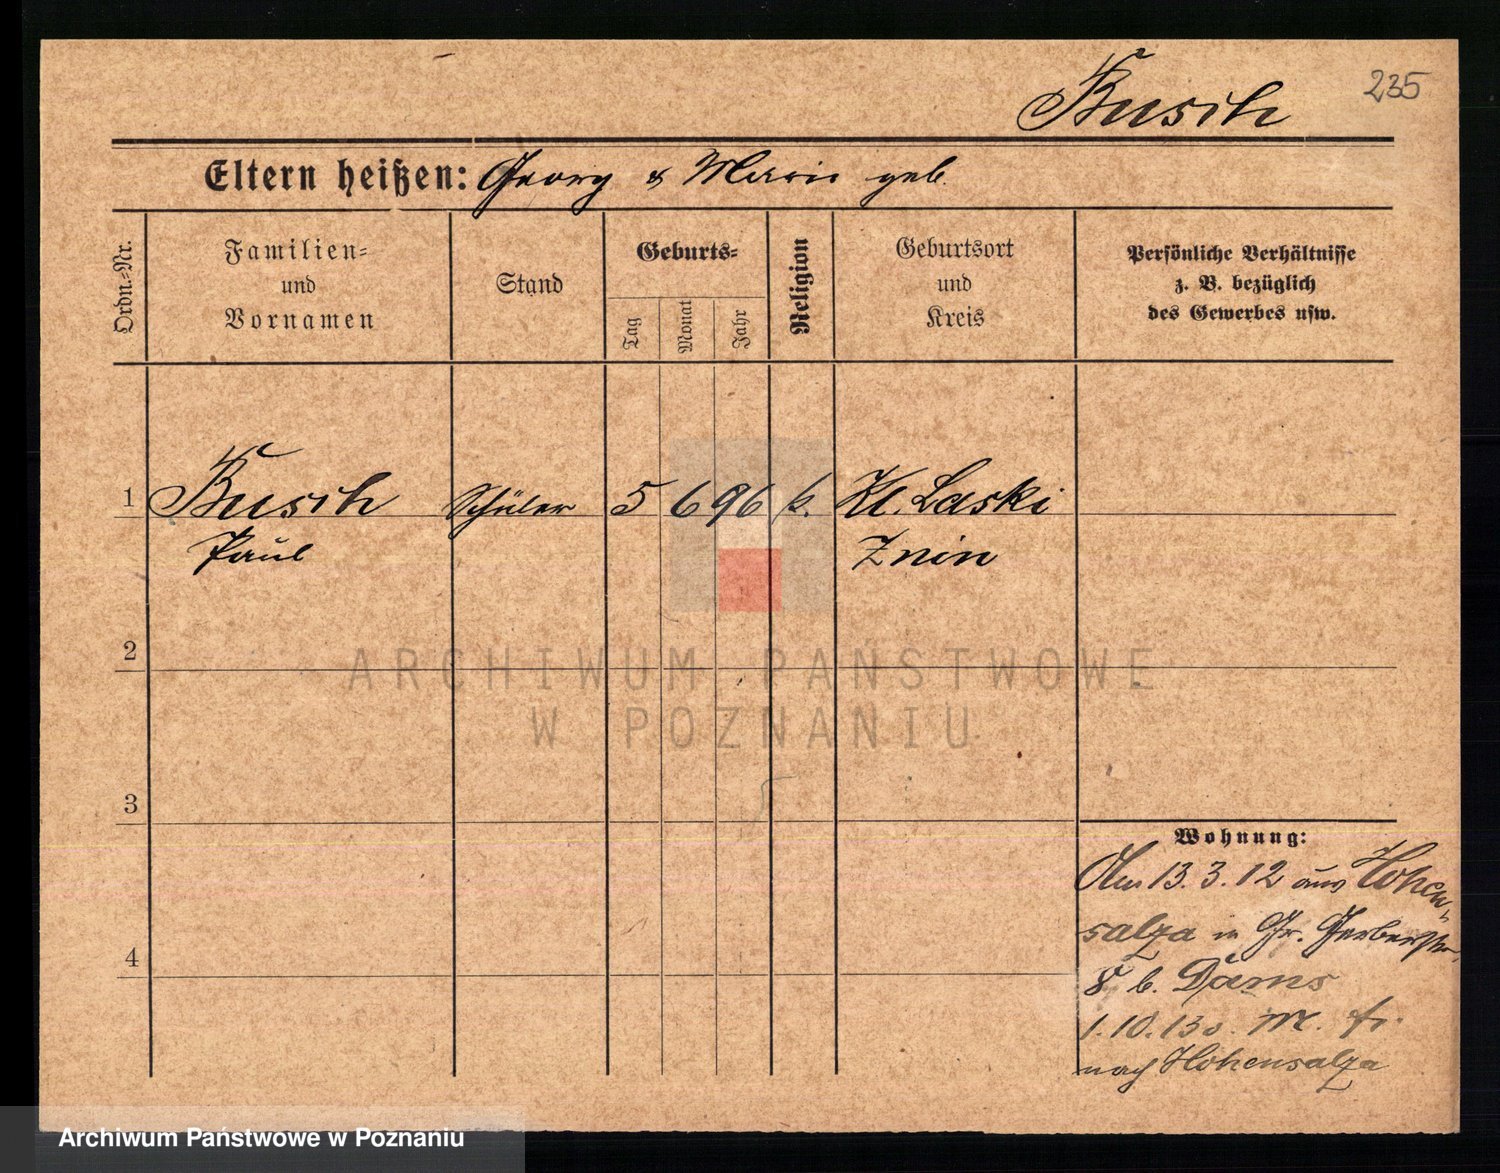 235
Busch
Eltern heißen: Georg & Marie geb.
Ordn.=Nr.
Familien=
und
Vornamen
Stand
Geburts=
Tag
Monat
Jahr
Religion
Geburtsort
und
Kreis
Persönliche Verhältnisse
z. B. bezüglich
des Gewerbes usw.
1 Busch Schüler 5 6 96 k. Kl. Laski
Paul Znin
2
ARCHIWUM PAŃSTWOWE
W POZNANIU
3
Wohnung:
Am 13.3.12 aus Hohen-
salza in Gr. Gerberstr.
8 b. Dams
1.10.13 M. fr.
nach Hohensalza
4
Archiwum Państwowe w Poznaniu